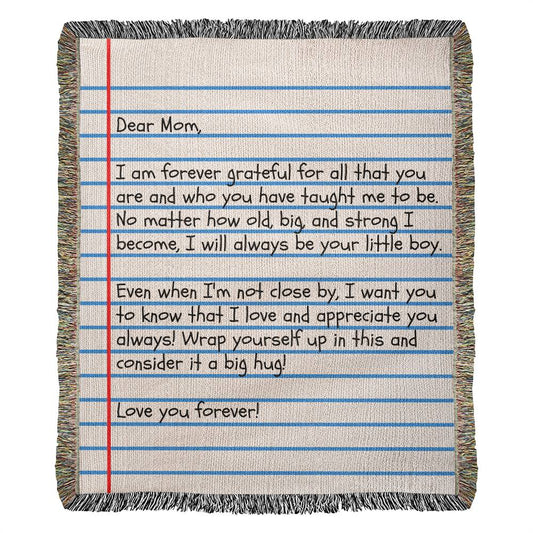 Dear Mom,
I am forever grateful for all that you
are and who you have taught me to be.
No matter how old, big, and strong I
become, I will always be your little boy.
Even when I'm not close by, I want you
to know that I love and appreciate you
always! Wrap yourself up in this and
consider it a big hug!
Love you forever!